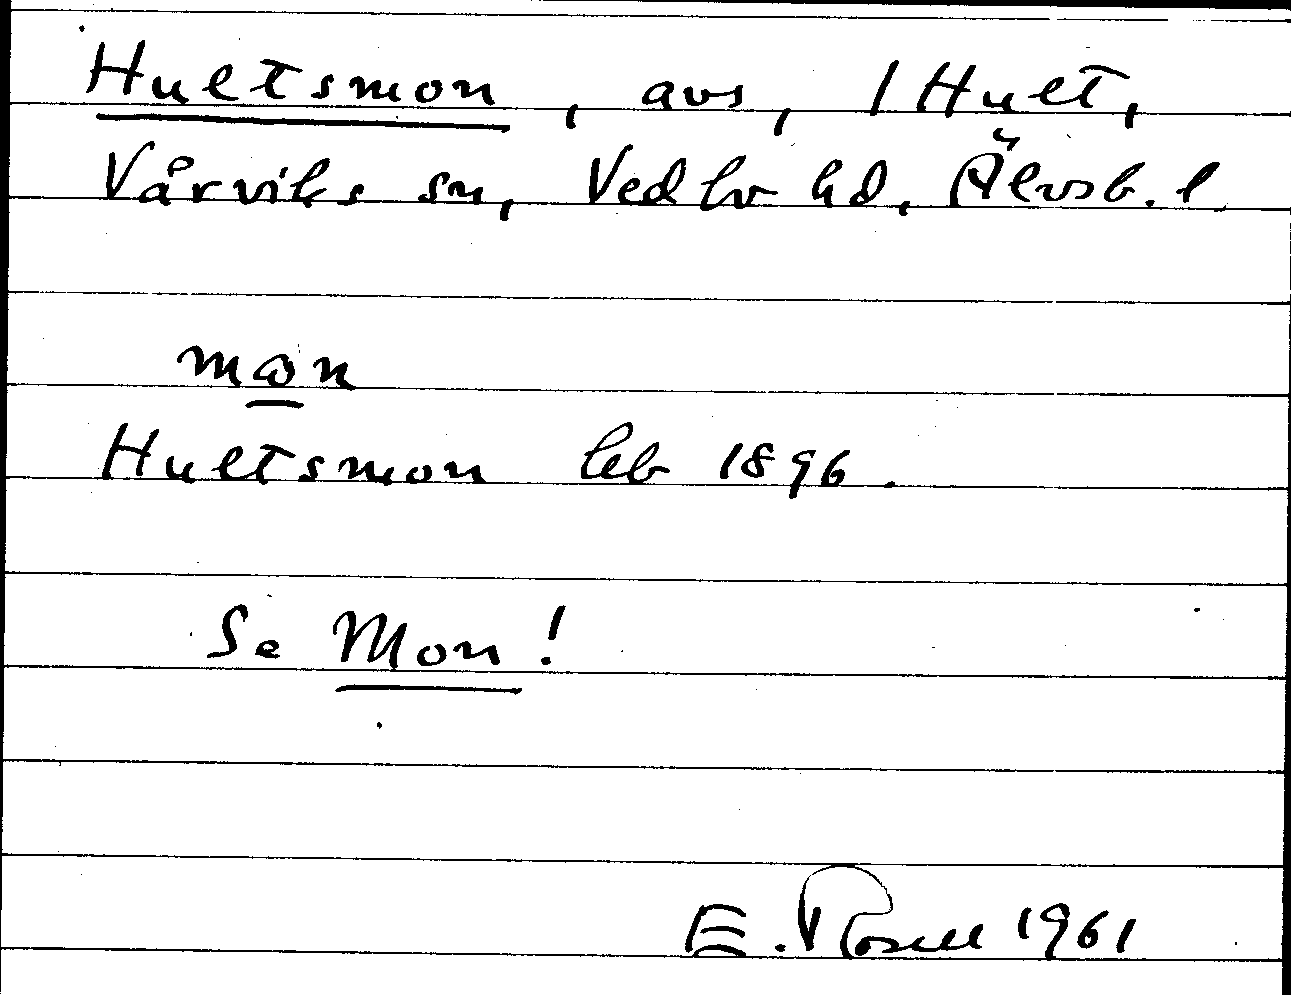 Hultsmon, avs, 1 Hult,
Vårviks sn, Vedbo hd, Älvsb. l
mɷn
Hultsmon leb 1896.
Se Mon!
E. Rosell 1961